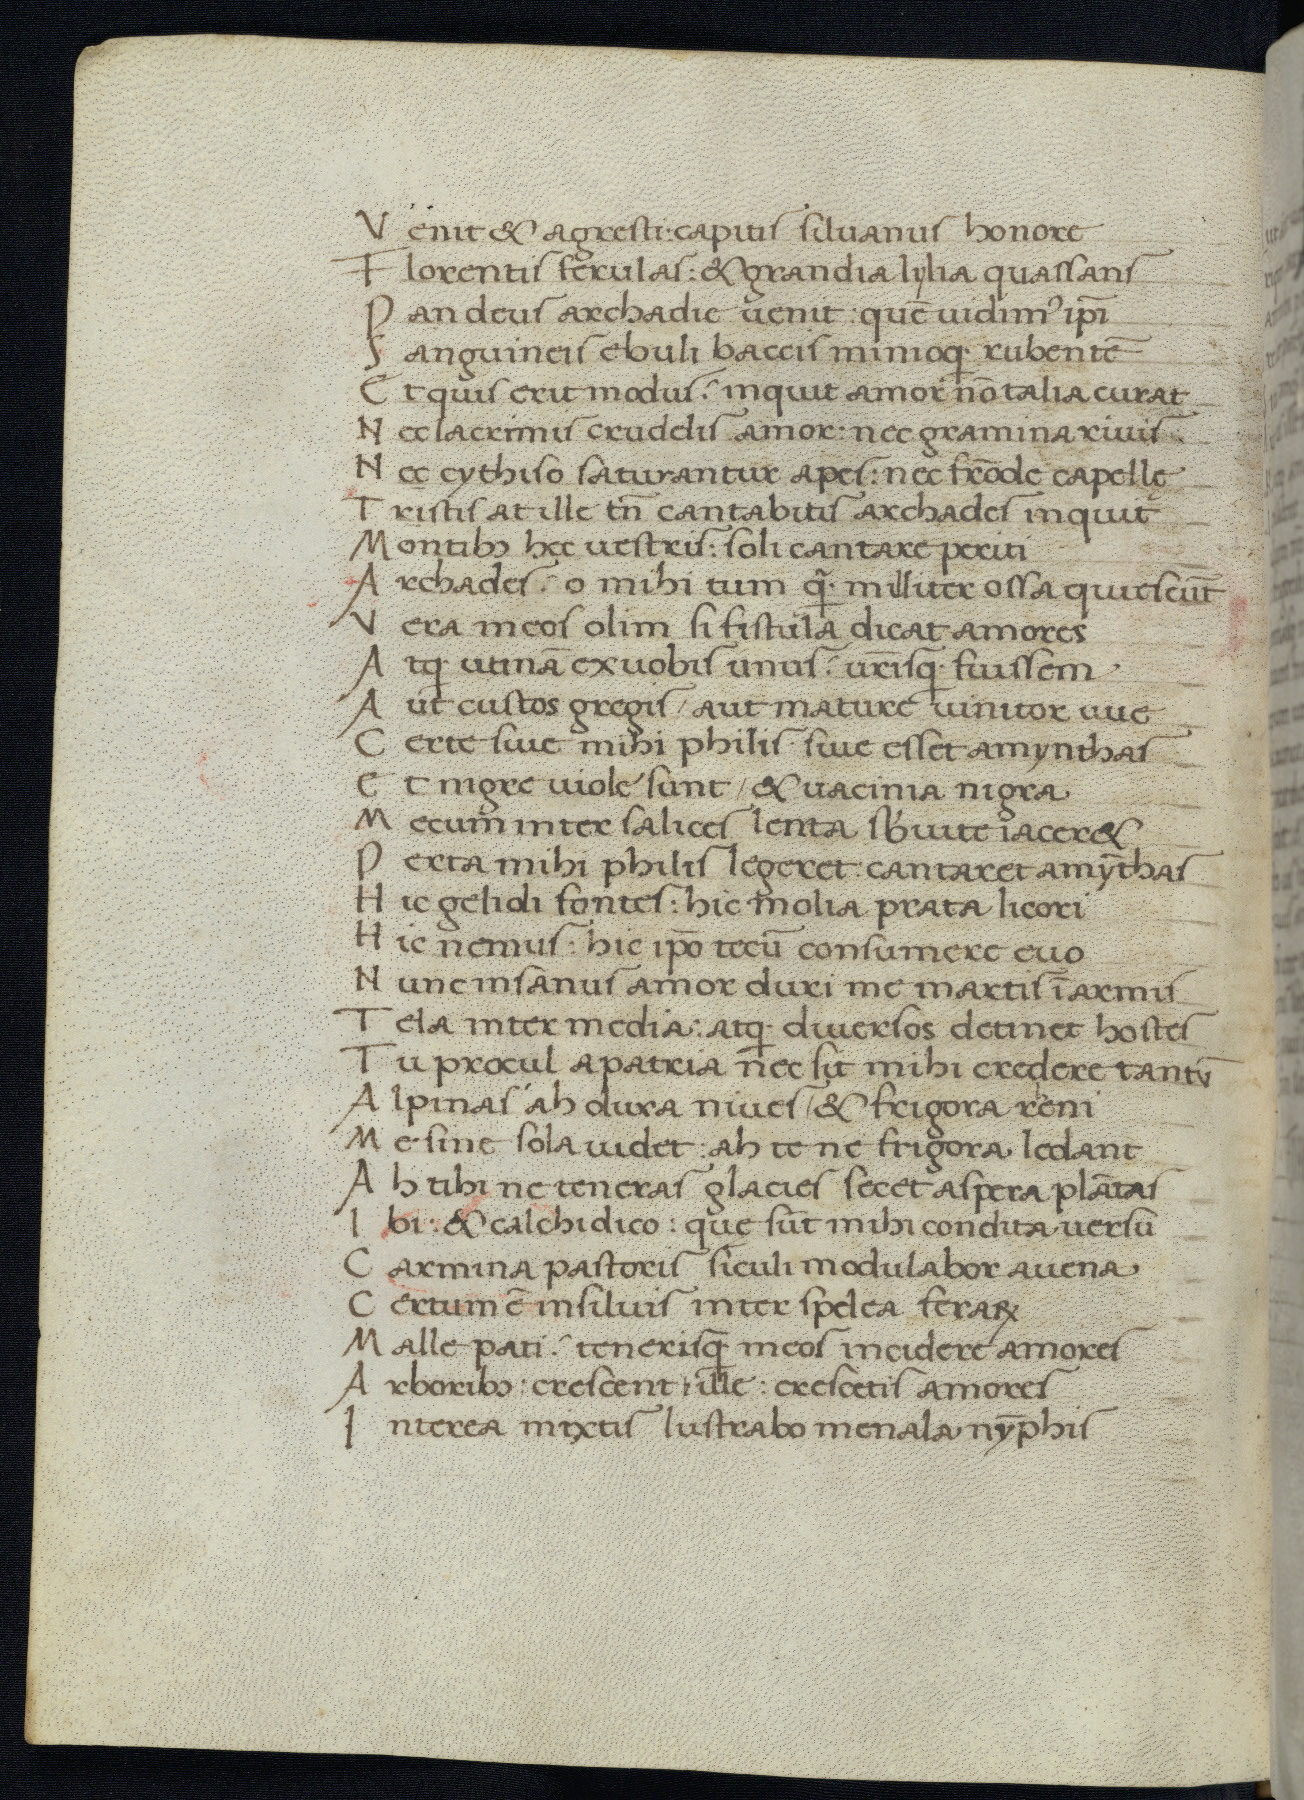 Venit & agresti capitis siluanus honore
Florentis ferulas: & grandia lylia quassans
Pan deus archadie uenit: quē uidimꝰ ip̄i
Sanguineis ebuli baccis minioq; rubentē
Et quis erit modus? inquit amor nō talia curat
Nec lacrimis crudelis amor: nec gramina riuis
Nec cythiso saturantur apes: nec frōde capellę
Tristis at ille tn̄ cantabitis archades inquit
Montibꝫ hec uestris: soli cantare periti
Archades. o mihi tum q̄ꝫ milliter ossa quiescūt
Vera meos olim si fistula dicat amores
Atq; utinā ex uobis unus: ur̄isq; fuissem
Aut custos gregis / aut mature uinitor uue
Certe siue mihi philis siue esset amynthas
Et nigre uiole sunt / & uacinia nigra
Mecum inter salices lenta sb̄ uite iacer&
Perta mihi philis legeret: cantaret amȳthas
Hic gelidi fontes: hic molia prata licori
Hic nemus: hic ip̄o tecū consumere euo
Nunc insanus amor duri me martis ī armis
Tela inter media: atq; diuersos detinet hostes
Tu procul a patria nec sit mihi credere tantū
Alpinas ah dura niues / & frigora rheni
Me sine sola uidet: ah te ne frigora ledant
Ah tibi ne teneras glacies secet aspera plātas
Ibi: & calchidico: que sūt mihi condita uersū
Carmina pastoris siculi modulabor auena
Certum ē in siluis inter spelea feraꝝ
Malle pati: tenerisq; meos incidere amores
Arboribꝫ: crescent ille: crescetis amores
Interea mixtis lustrabo menala nȳphis